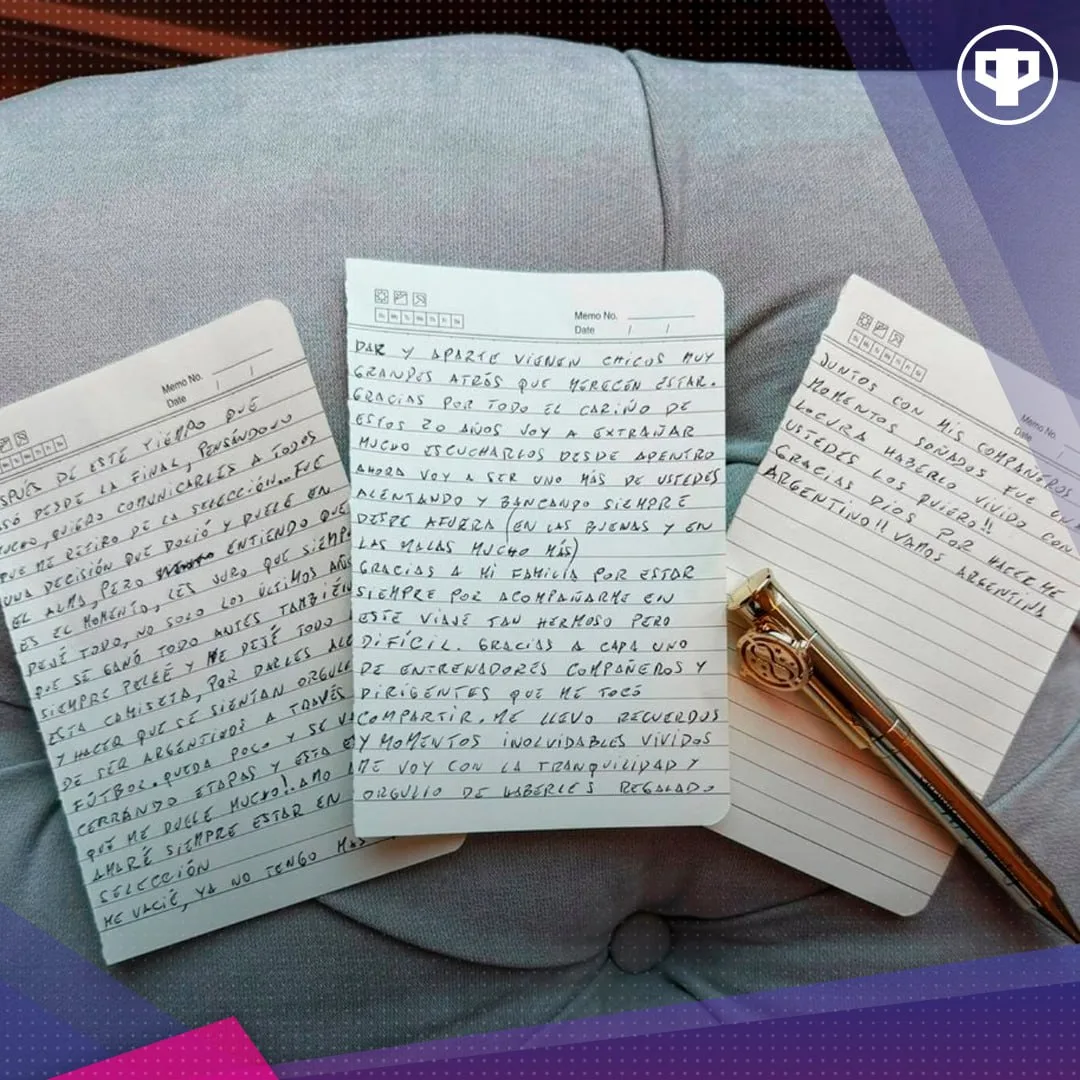 Memo No.
Date / /
SPUÉS DE ESTE TIEMPO QUE
SÓ DESDE LA FINAL, PENSÁNDOLO
UCHO, QUIERO COMUNICARLES A TODOS
QUE ME RETIRO DE LA SELECCIÓN... FUE
UNA DECISIÓN QUE DOLIÓ Y DUELE EN
EL ALMA, PERO ENTIENDO QUE
ES EL MOMENTO, LES JURO QUE SIEMP
DEJÉ TODO, NO SOLO LOS ÚLTIMOS AÑOS
QUE SE GANÓ TODO ANTES TAMBIÉN
SIEMPRE PELEÉ Y ME DEJÉ TODO
ESTA CAMISETA, POR DARLES ALE
Y HACER QUE SE SIENTAN ORGULL
DE SER ARGENTINOS A TRAVÉS
FÚTBOL. QUEDA POCO Y SE VA
CERRANDO ETAPAS Y ESTA E
QUE ME DUELE MUCHO! AMO
AMARÉ SIEMPRE ESTAR EN
SELECCIÓN
ME VACIÉ, YA NO TENGO MAS
Memo No.
Date / /
DAR Y APARTE VIENEN CHICOS MUY
GRANDES ATRÁS QUE MERECEN ESTAR.
GRACIAS POR TODO EL CARIÑO DE
ESTOS 20 AÑOS VOY A EXTRAÑAR
MUCHO ESCUCHARLOS DESDE ADENTRO
AHORA VOY A SER UNO MÁS DE USTEDES
ALENTANDO Y BANCANDO SIEMPRE
DESDE AFUERA (EN LAS BUENAS Y EN
LAS MALAS MUCHO MÁS)
GRACIAS A MI FAMILIA POR ESTAR
SIEMPRE POR ACOMPAÑARME EN
ESTE VIAJE TAN HERMOSO PERO
DIFÍCIL. GRACIAS A CADA UNO
DE ENTRENADORES COMPAÑEROS Y
DIRIGENTES QUE ME TOCÓ
COMPARTIR. ME LLEVO RECUERDOS
Y MOMENTOS INOLVIDABLES VIVIDOS
ME VOY CON LA TRANQUILIDAD Y
ORGULLO DE HABERLES REGALADO
Memo No.
Date
JUNTOS CON MIS COMPAÑEROS
MOMENTOS SOÑADOS FUE UNA
LOCURA HABERLO VIVIDO CON
USTEDES LOS QUIERO!!
GRACIAS DIOS POR HACERME
ARGENTINO!! VAMOS ARGENTINA